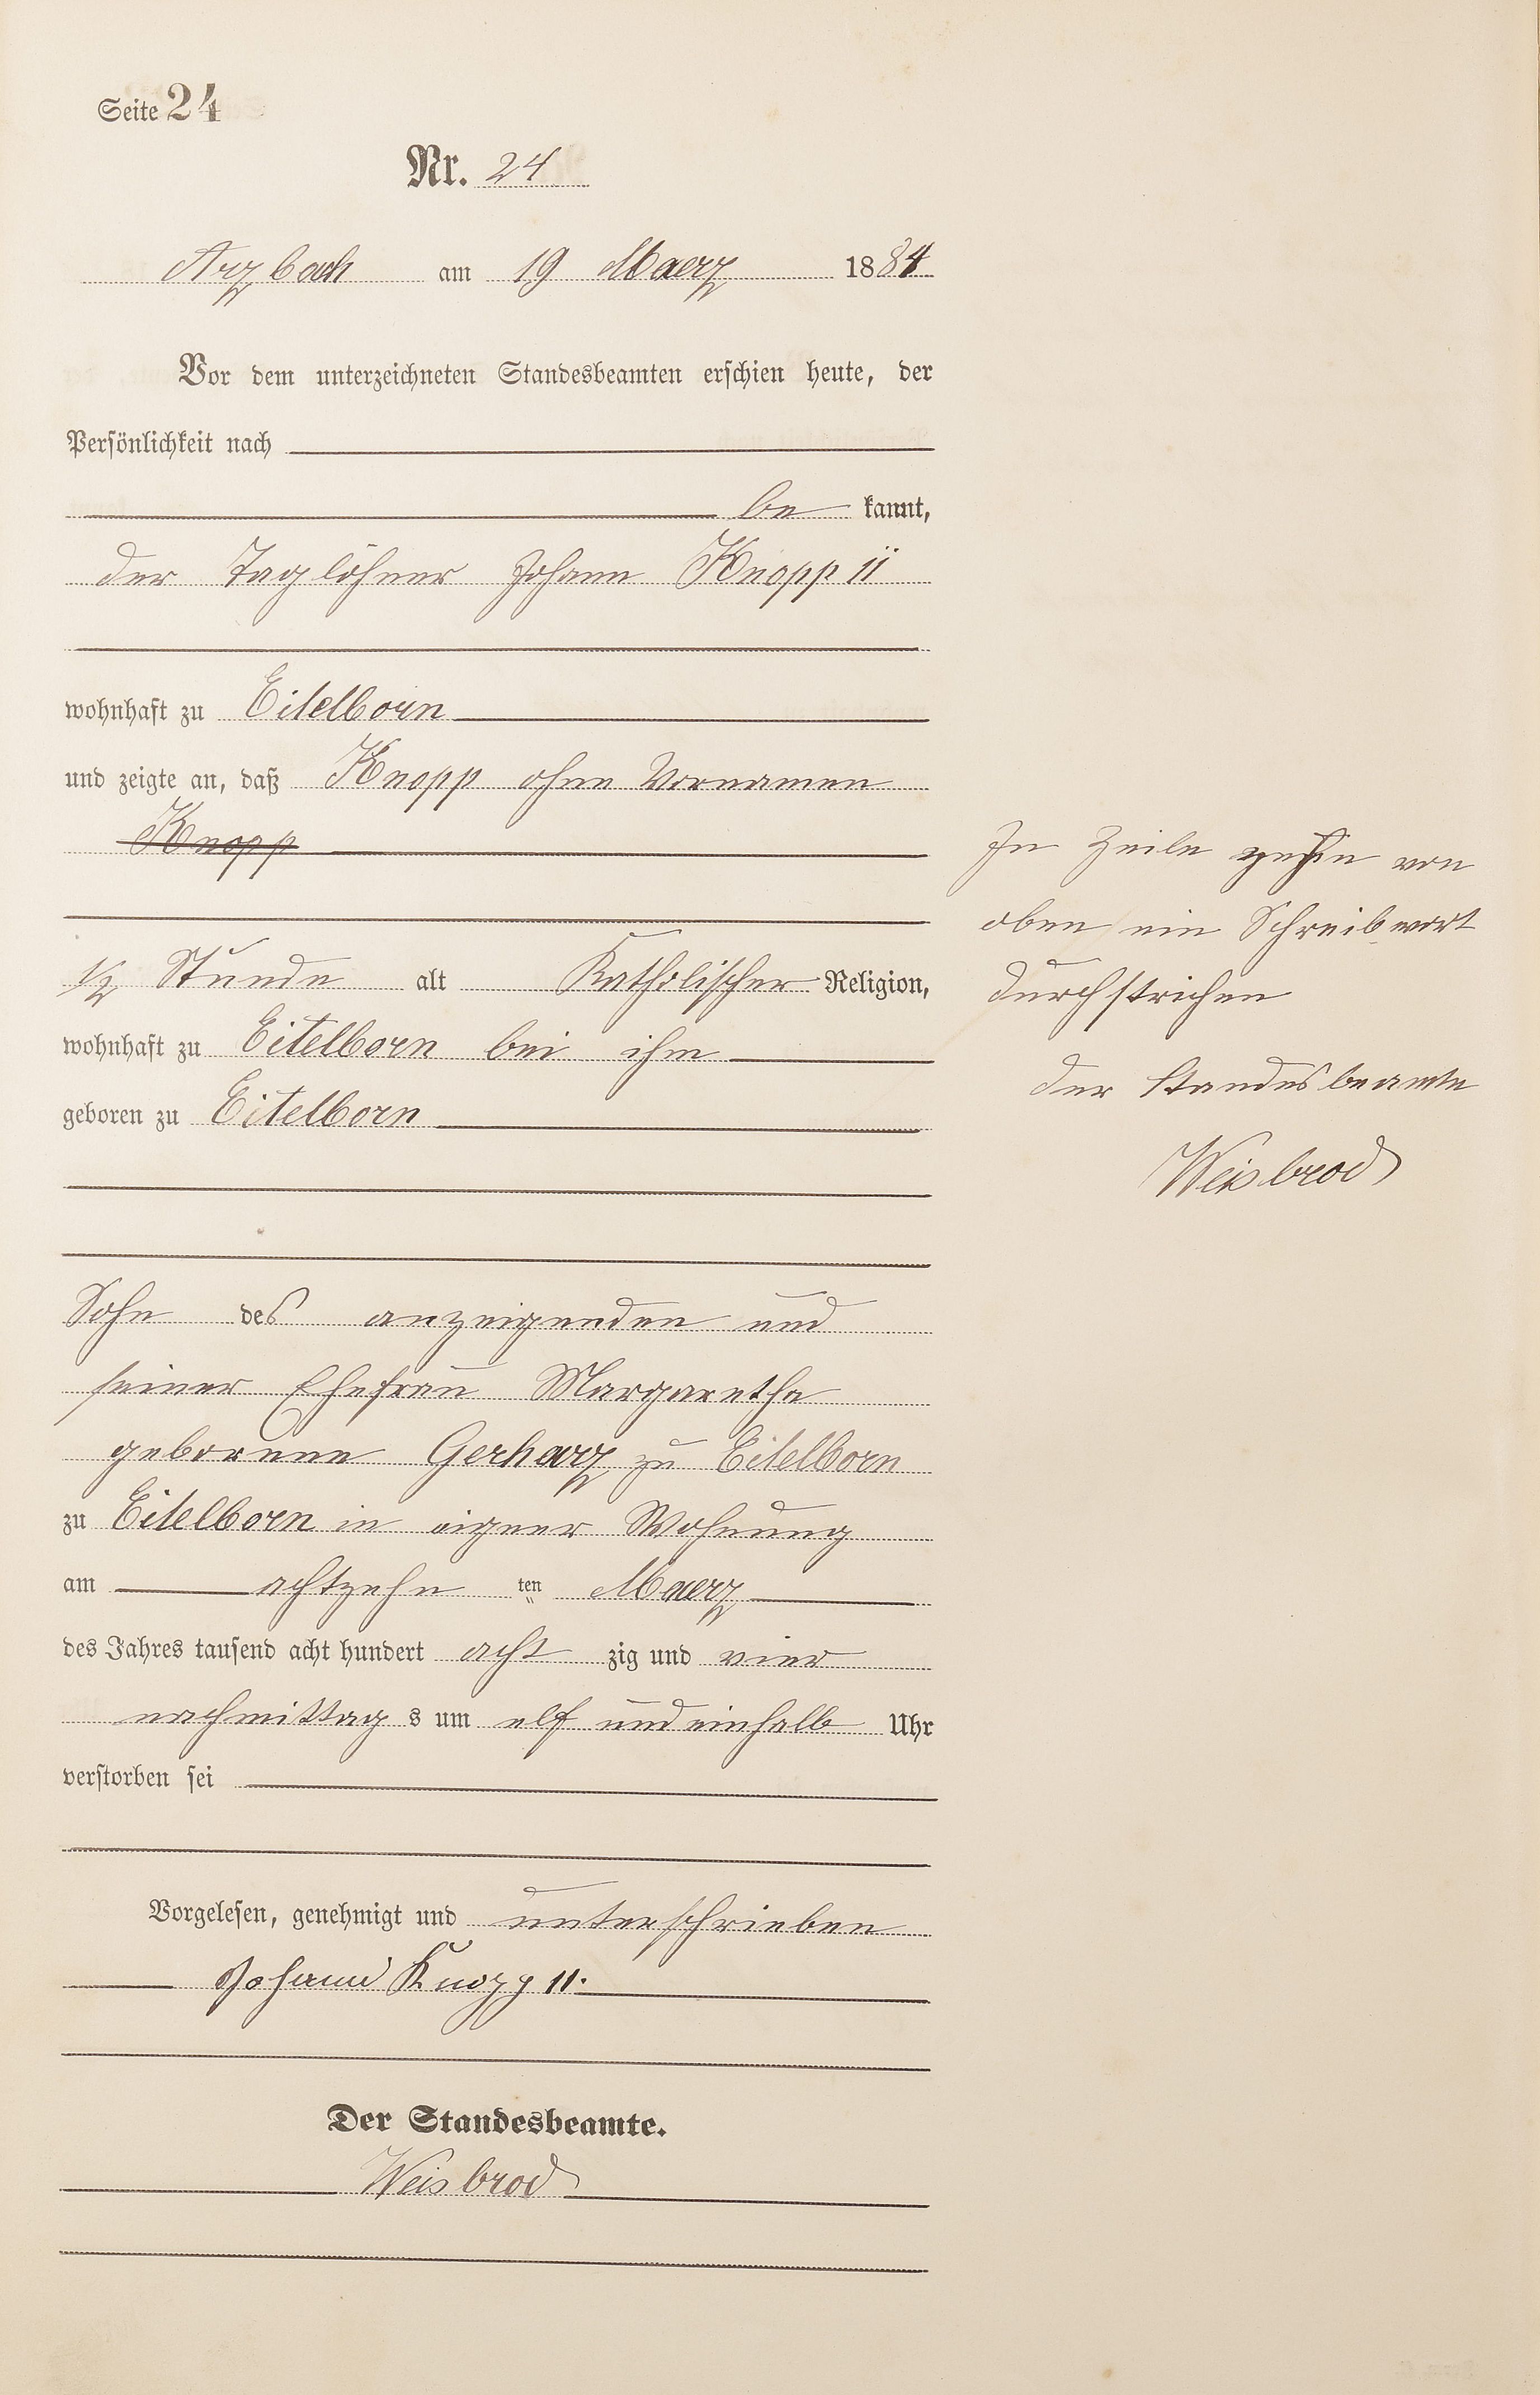 Seite 24
Nr. 24
Arzbach am 19 Maerz 1884
Vor dem unterzeichneten Standesbeamten erschien heute, der
Persönlichkeit nach
be kannt,
der Taglöhner Johann Knopp II
wohnhaft zu Eitelborn
und zeigte an, daß Knopp ohne Vornamen
Knopp
1/2 Stunde alt Katholischer Religion,
wohnhaft zu Eitelborn bei ihm
geboren zu Eitelborn
Sohn des anzeigenden und
seiner Ehefrau Margaretha
geborene Gerharz zu Eitelborn
zu Eitelborn in eigner Wohnung
am achtzehn ten Maerz
des Jahres tausend acht hundert acht zig und vier
nachmittag s um elf und einhalb Uhr
verstorben sei
Vorgelesen, genehmigt und unterschrieben
Johann Knopp II.
Der Standesbeamte.
Weisbrod
In Zeile zehn von
oben ein Schreibwort
durchstrichen
der Standesbeamte
Weisbrod